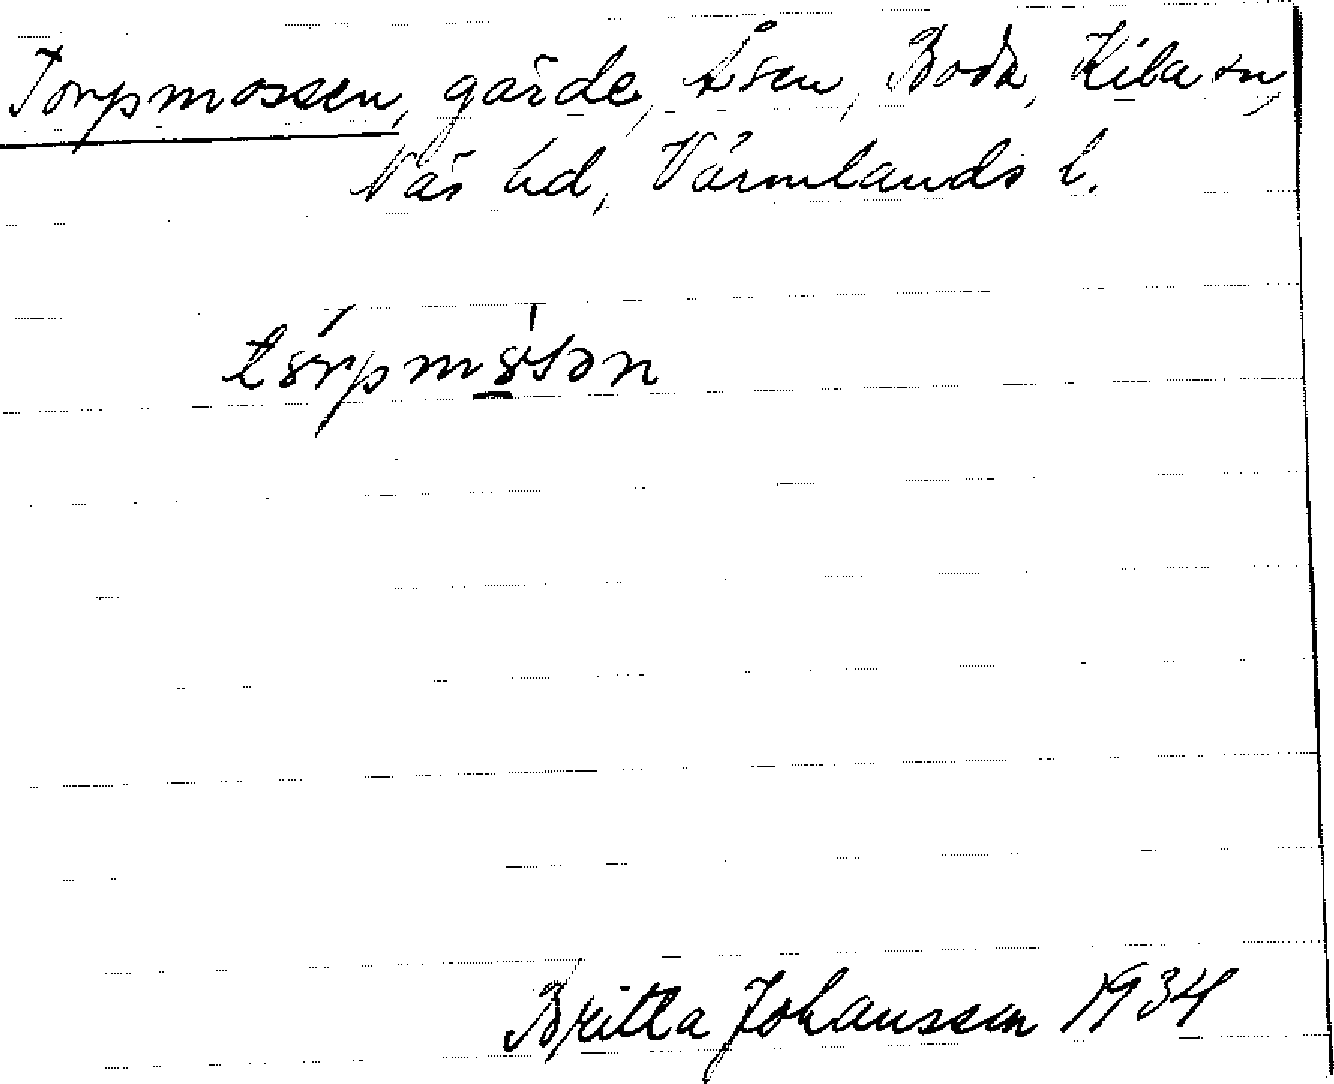 Torpmossen, gärde, Åsen, Boda, Kila sn,
Näs hd, Värmlands l.
Britta Johansson 1934